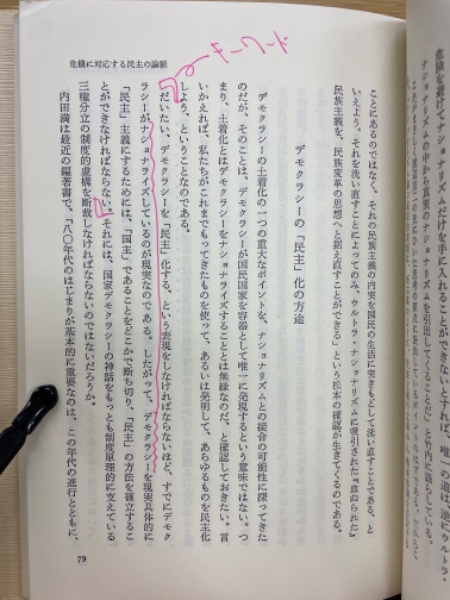 危機に対応する民主の論脈
キーワード
危険を避けてナショナリズムだけを手に入れることができないとすれば、唯一の道は、逆にウルトラ・
ナショナリズムの中から真実のナショナリズムを引出してくることだ」と竹内に語らしている。
ことにあるのではなく、それの民族主義の内実を国民の生活に突きもどして洗い直すことである、と
いえよう。それを洗い直すことによってのみ、ウルトラ・ナショナリズムに吸引された『直ぬられた』
民族主義を、民族変革の思想へと据え直すことができる」という松本の確認が生きてくるのである。
デモクラシーの「民主」化の方途
デモクラシーの土着化の一つの重大なポイントを、ナショナリズムとの接合の可能性に探ってきた
のだが、そのことは、デモクラシーが国民国家を容器として唯一に発現するという意味ではない。つ
まり、土着化とはデモクラシーをナショナライズすることとは無縁なのだ、と確認しておきたい。言
いかえれば、私たちがこれまでもってきたものを使って、あるいは発明して、あらゆるものを民主化
しよう、ということなのである。
だいたい、デモクラシーを「民主」化する、という表現をしなければならないほど、すでにデモク
ラシーがナショナライズしているのが現実なのである。したがって、デモクラシーを現実具体的に
「民主」主義にするためには、「国主」であることをどこかで断ち切り、「民主」の方法を確立するこ
とができなければならない。それには、国家デモクラシーの神話をもっとも制度原理的に支えている
三権分立の制度的虚構を断裁しなければならないのではないだろうか。
内田満は最近の編著書で、「八〇年代のはじまりが基本的に重要なのは、この年代の進行とともに、
79